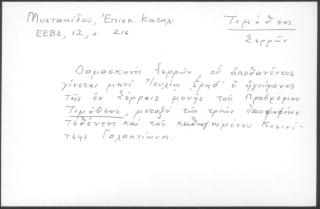 Μυστακίδου, Ἐπισκ. Καταλ.
ΕΕΒΣ, 12, σ. 216
Τιμόθεος
Σερρῶν
Δαμασκηνὸς Σερρῶν οὗ ἀποθανόντος
γίνεται μηνὶ Ἰουλίῳ ὁ ἡγούμενος
τῆς ἐν Σέρραις μονῆς τοῦ Προδρόμου
Τιμόθεος, μεταξὺ τῶν τριῶν ὑποψηφίων
τεθέντος καὶ τοῦ καθηγουμένου Κοσινί-
τσης Γαλακτίωνος.